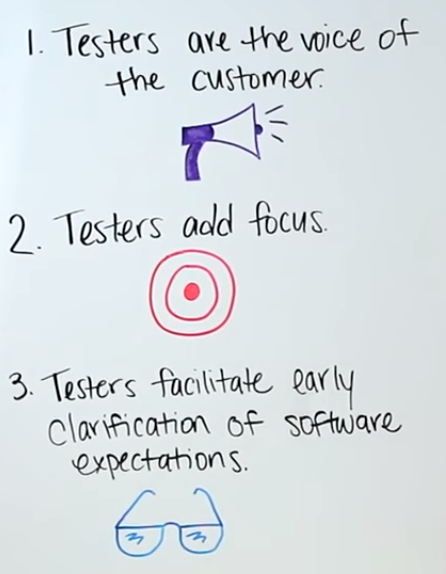 1. Testers are the voice of
the customer.
2. Testers add focus.
3. Testers facilitate early
clarification of software
expectations.